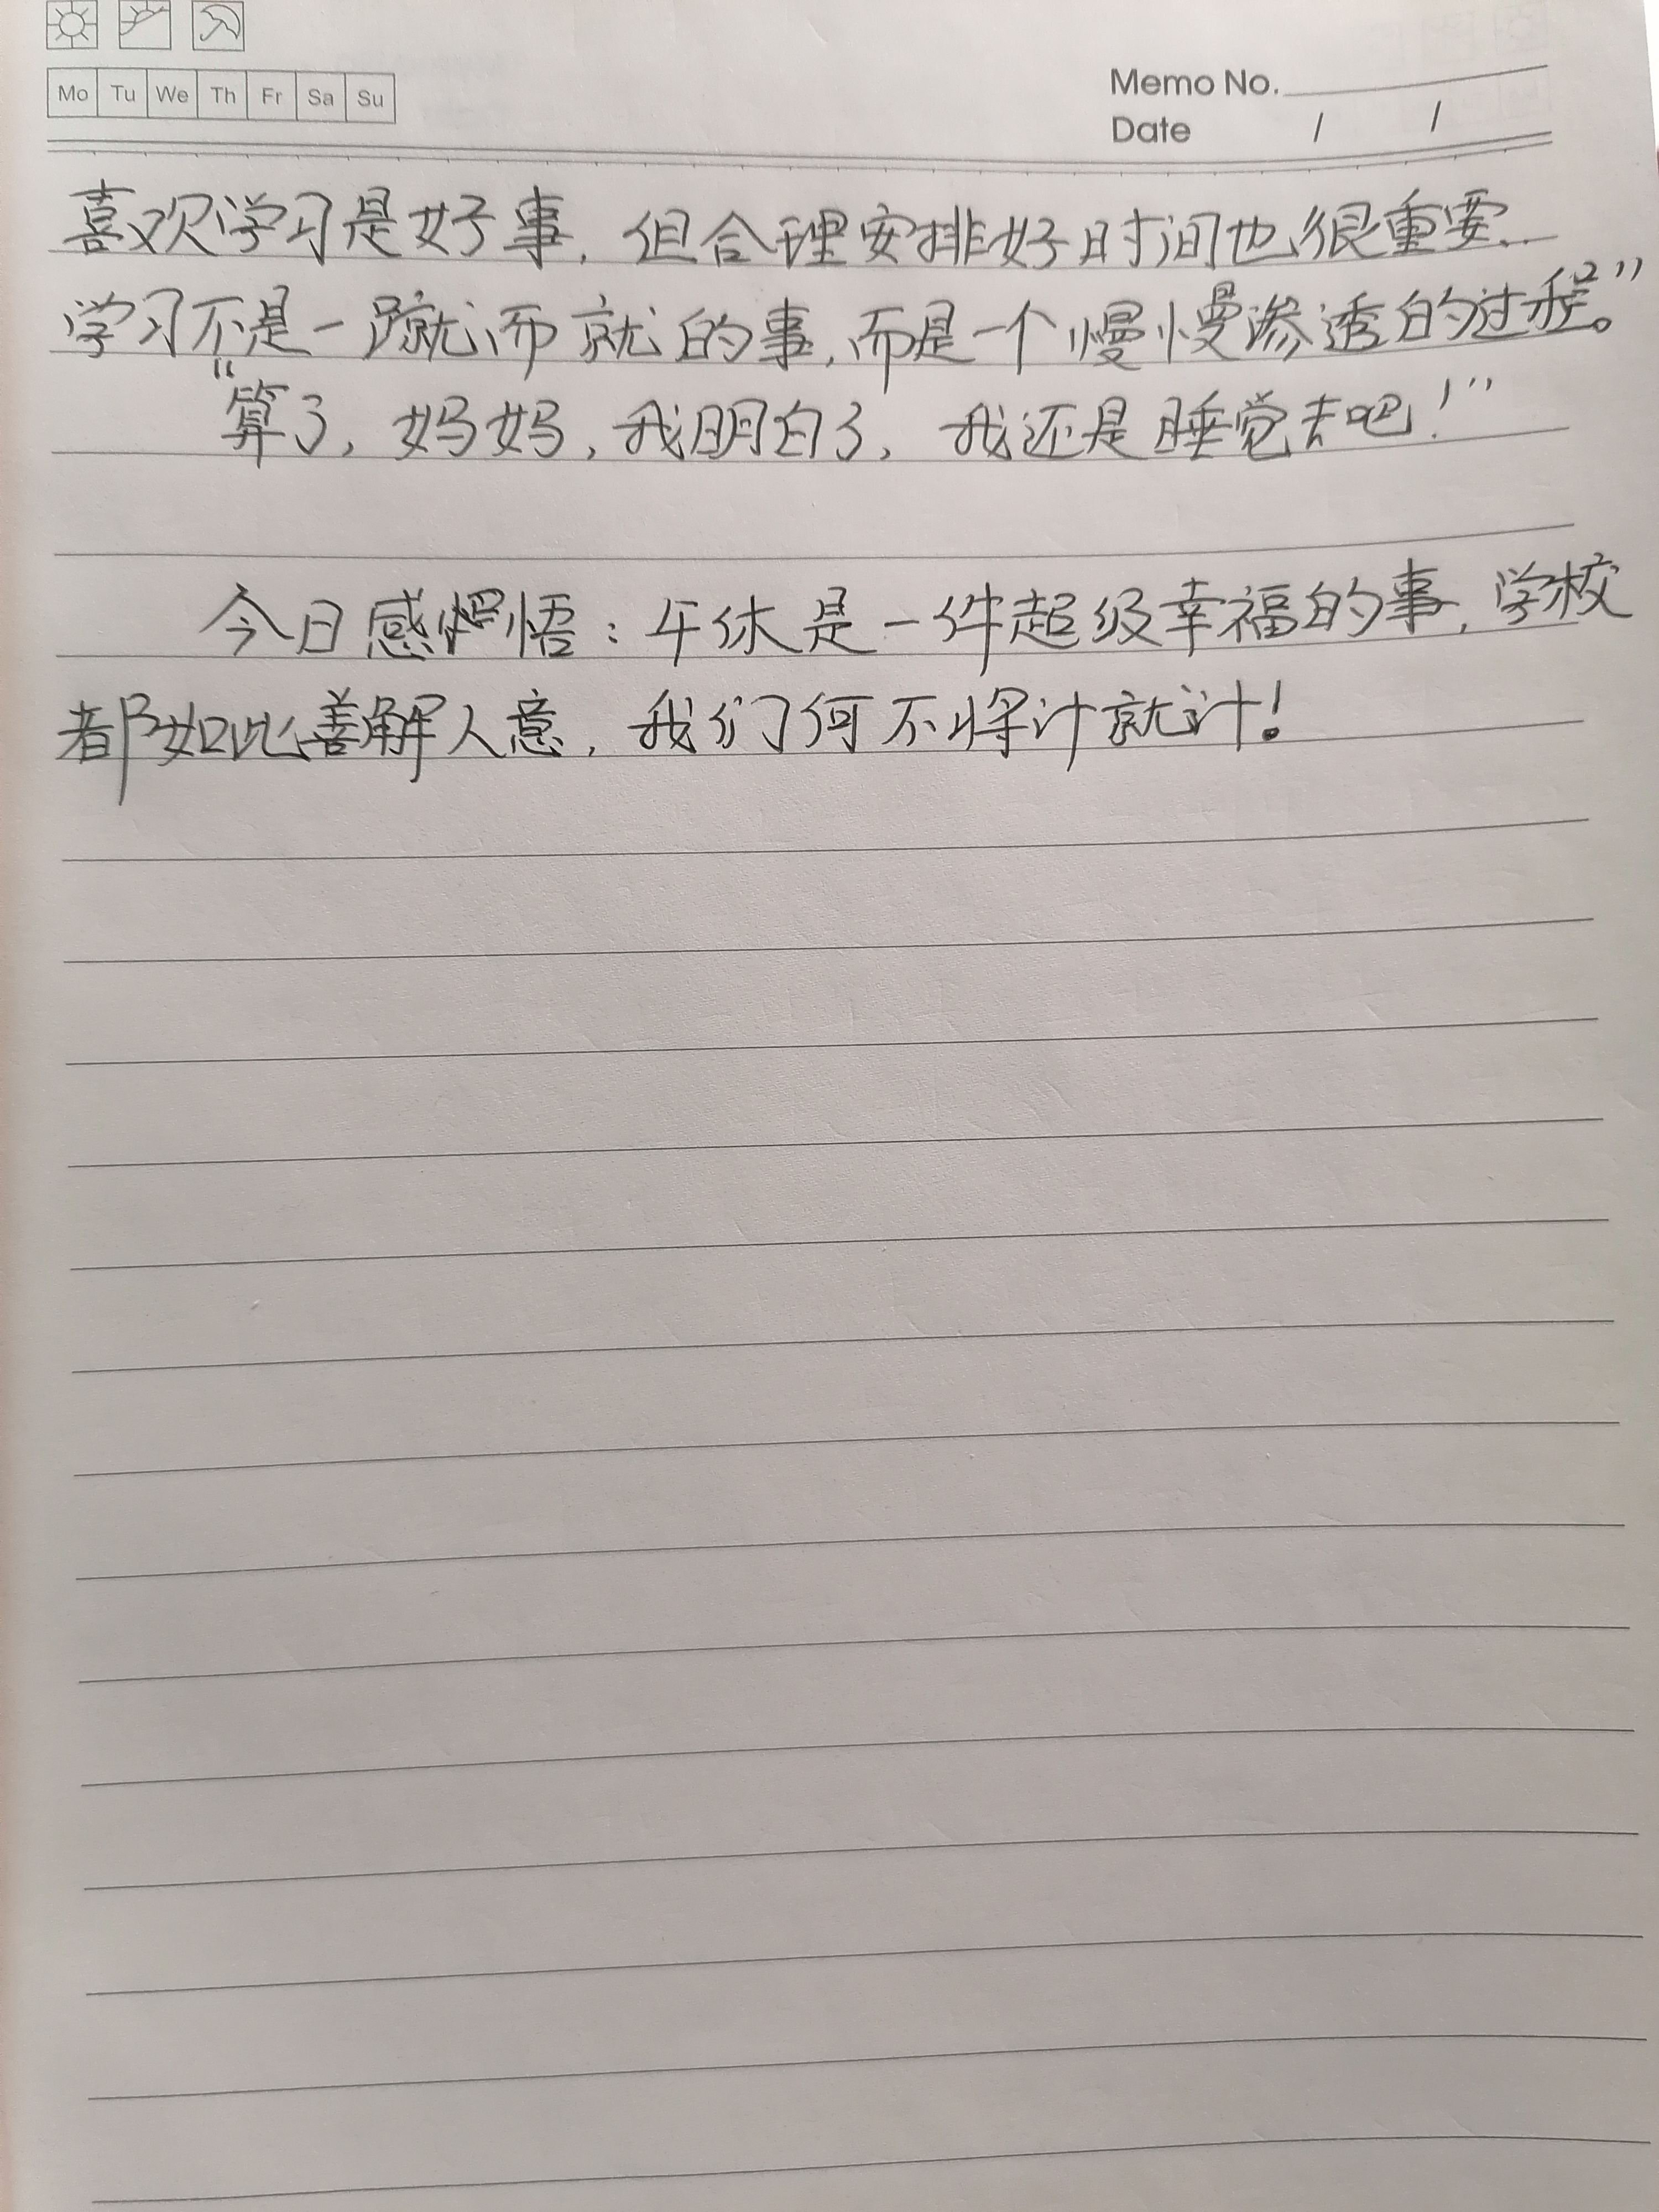 Mo Tu We Th Fr Sa Su
Memo No.
Date / /
喜欢学习是好事，但合理安排好时间也很重要..
学习不是一蹴而就的事，而是一个慢慢渗透的过程。”
“算了，妈妈，我明白了，我还是睡觉去吧！”
今日感悟：午休是一件超级幸福的事，学校
都如此善解人意，我们何不将计就计！